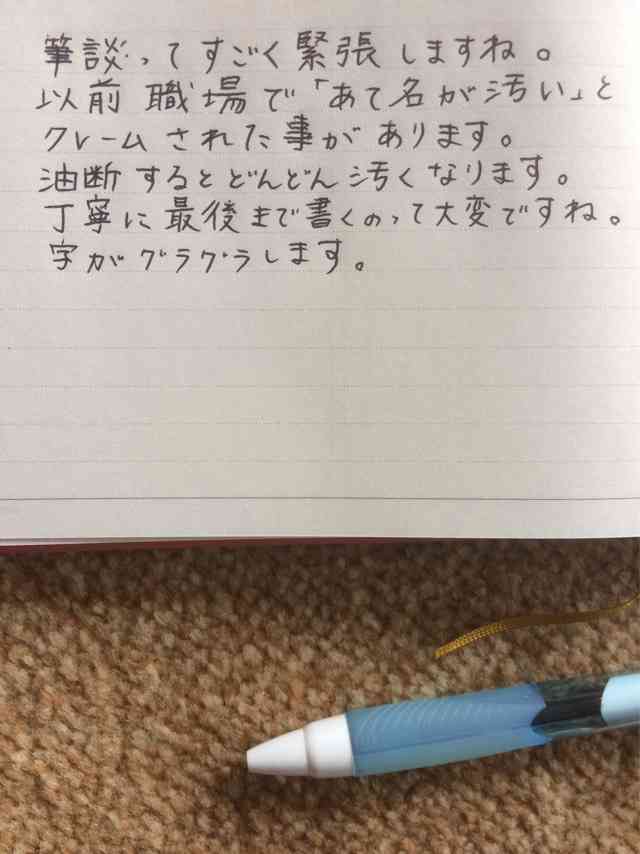 筆談ってすごく緊張しますね。
以前職場で「あて名が汚い」と
クレームされた事があります。
油断するとどんどん汚くなります。
丁寧に最後まで書くのって大変ですね。
字がグラグラします。